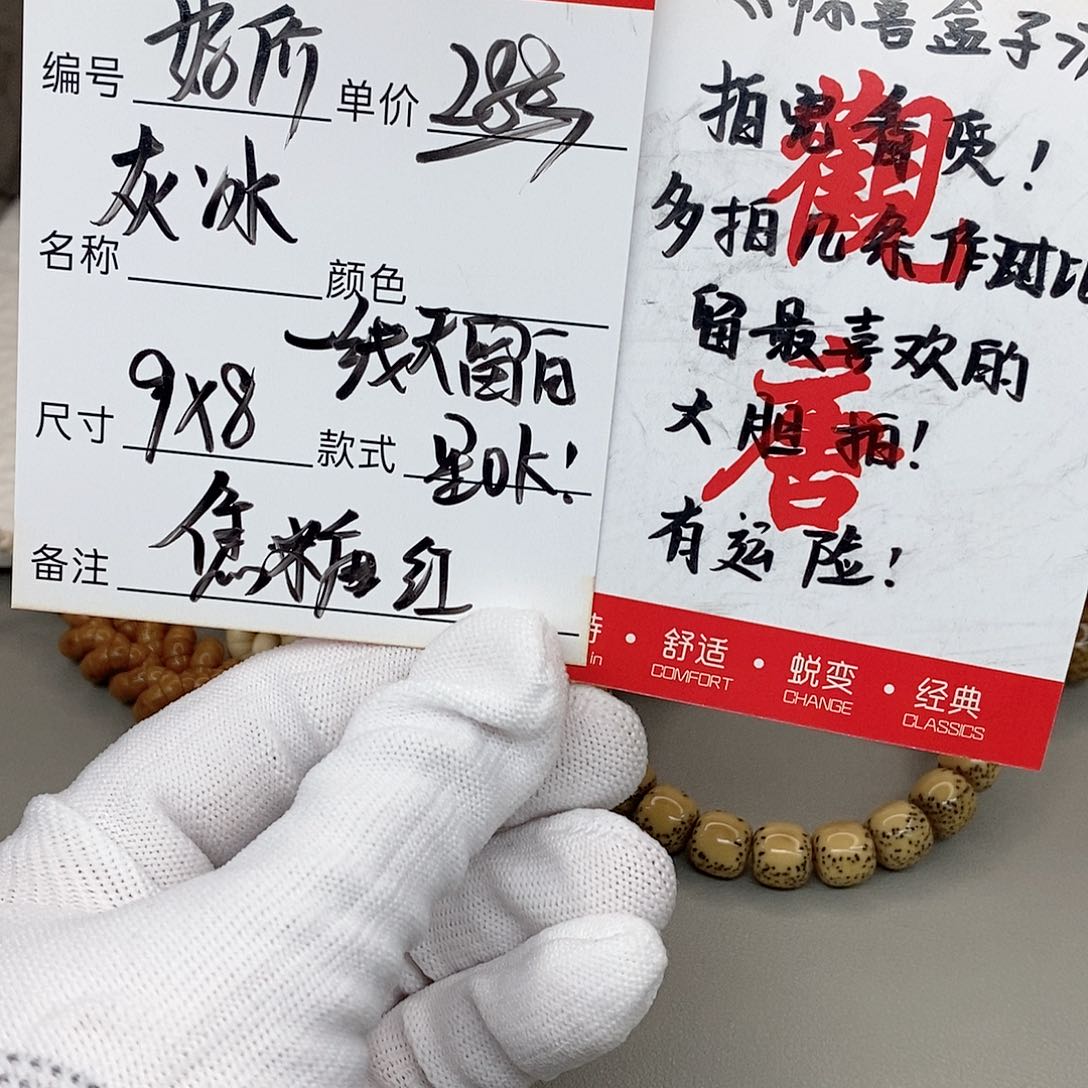 编号 好价 单价 288
名称 灰冰 颜色
尺寸 9X8 款式 一线天留白 星OK!
备注 焦糖红
《惊喜盒子》
拍完看质!
多拍几条作对比
留最喜欢的
大胆拍!
有运险!
觀唐
in
舒适 · 蜕变 · 经典
COMFORT CHANGE CLASSICS